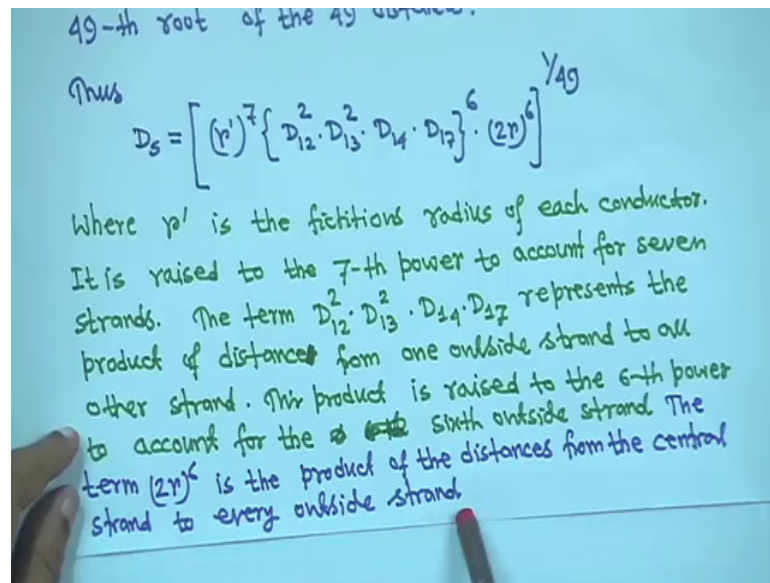 49-th root of the 49 distance.
Thus
D_s = [(r')^7 {D_12^2 . D_13^2 . D_14 . D_17}^6 . (2r)^6]^1/49
Where r' is the fictitious radius of each conductor.
It is raised to the 7-th power to account for seven
strands. The term D_12^2 . D_13^2 . D_14 . D_17 represents the
product of distance from one outside strand to all
other strand. This product is raised to the 6-th power
to account for the sixth outside strand The
term (2r)^6 is the product of the distances from the central
strand to every outside strand